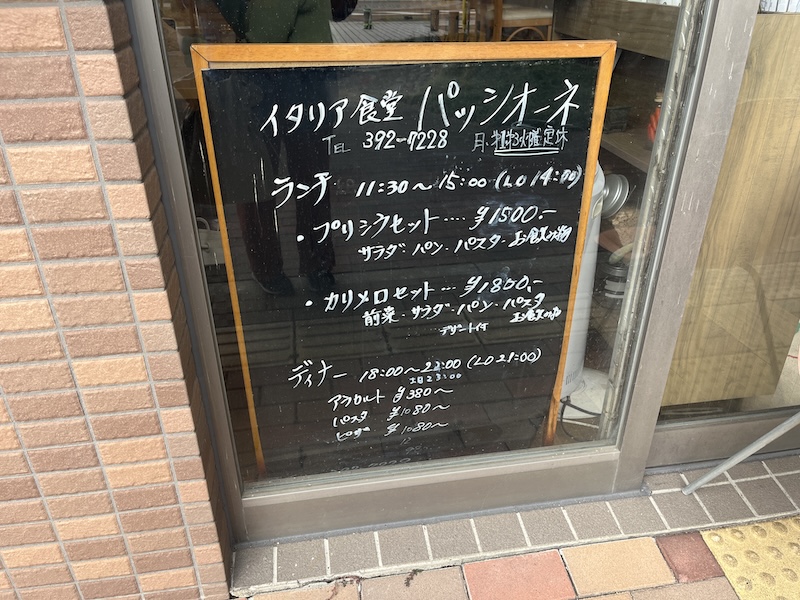 イタリア食堂 パッシオーネ
TEL 392-7228 月・ 火曜定休
ランチ 11:30〜15:00 (LO 14:00)
・プリシクセット‥‥¥1500.-
サラダ・パン・パスタ・お飲み物
・カリメロセット‥‥¥1800.-
前菜・サラダ・パン・パスタ お飲み物
デザート付
ディナー 18:00〜22:00 (LO 21:00)
土日23:00
アラカルト ¥380〜
パスタ ¥1080〜
ピザ ¥1080〜